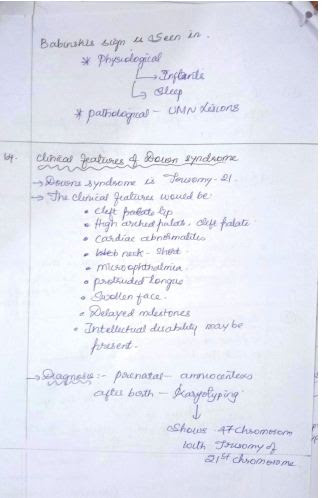 Babinskis sign is seen in.
* Physiological
→ Infants
→ Sleep
* pathological - UMN Lesions
Clinical features of Down syndrome
→ Downs syndrome is Trisomy-21.
→ The clinical features would be:
• cleft lip
• High arched palate, cleft palate.
• Cardiac abnormalities
• neck - short.
• microophthalmia.
• protruded tongue
• Swollen face.
• Delayed milestones
• Intellectual disability may be
present.
→ Diagnosis:- prenatal - amniocentesis
after birth - Karyotyping
↓
Shows 47 Chromosom
with Trisomy of
21st chromosome